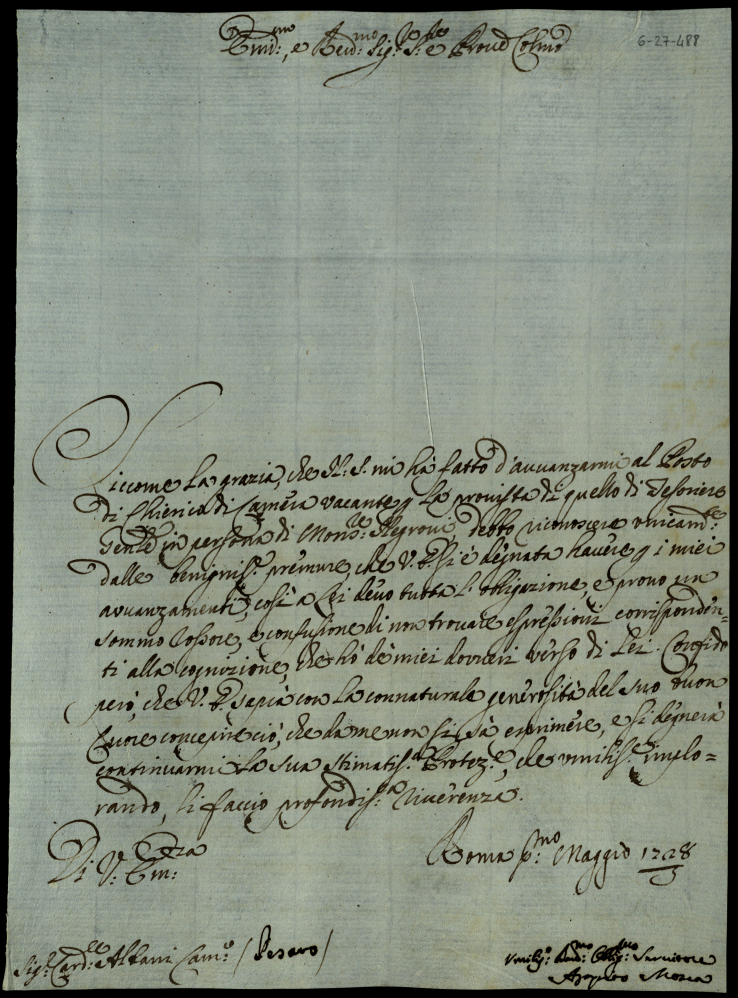 Em̃.mo, e Rev.mo Sig.r P.ne e Proñ Colmo
6-27-488
Siccome la grazia, che N. S. mi hà fatto d'avvanzarmi al Posto
di Chierico di Camera vacante p la provista di quello di Tesoriere
Gen̄le in persona di Mons.re Negroni debbo riconoscere unicam.te
dalle benigniss.e premure che V. E. si è degnata havere p i miei
avvanzamenti, così a Lei devo tutta l'obligazione, e provo un
sommo rossore, e confusione di non trovare espressioni corrisponden=
ti alla cognizione, che hò de miei doveri verso di Lei. Confido
però, che V. E. sapia con la connaturale generosità del suo buon
Cuore concepire ciò, che da me non si sà esprimere, e si degnerà
continuarmi la sua stimatis.a Protez.e, che umiliss.e implo=
rando, li faccio profondis.a riverenza.
Di V.ra Em:
Roma p.mo Maggio 1728
Sig.r Card.le Albani Cam.o (Pesaro)
Umiliss.o Dev.mo Obblig.mo Servitore